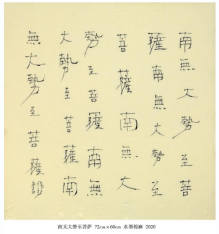 南無大勢至菩
薩南無大勢至
菩薩南無大
勢至菩薩南無
大勢至菩薩南
無大勢至菩薩
南无大势至菩萨 72cm×60cm 水墨 2020